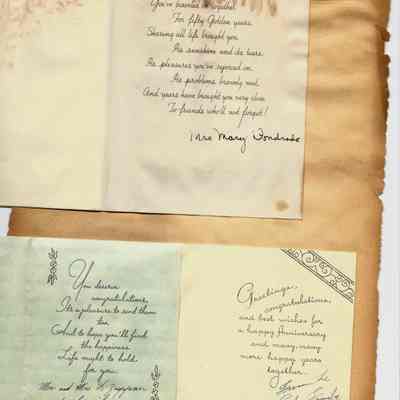 You've traveled together
For fifty Golden years,
Sharing all life brought you
Its sunshine and its tears.
Its pleasures you've rejoiced in
Its problems bravely met,
And years have brought you very close
To friends who'll not forget!
Mrs Mary
You deserve
congratulations,
It's a pleasure to send them
too
And to hope you'll find
the happiness
Life ought to hold
for you.
Mr. and Mrs.
Greetings,
congratulations,
and best wishes for
a happy Anniversary
and many, many
more happy years
together.